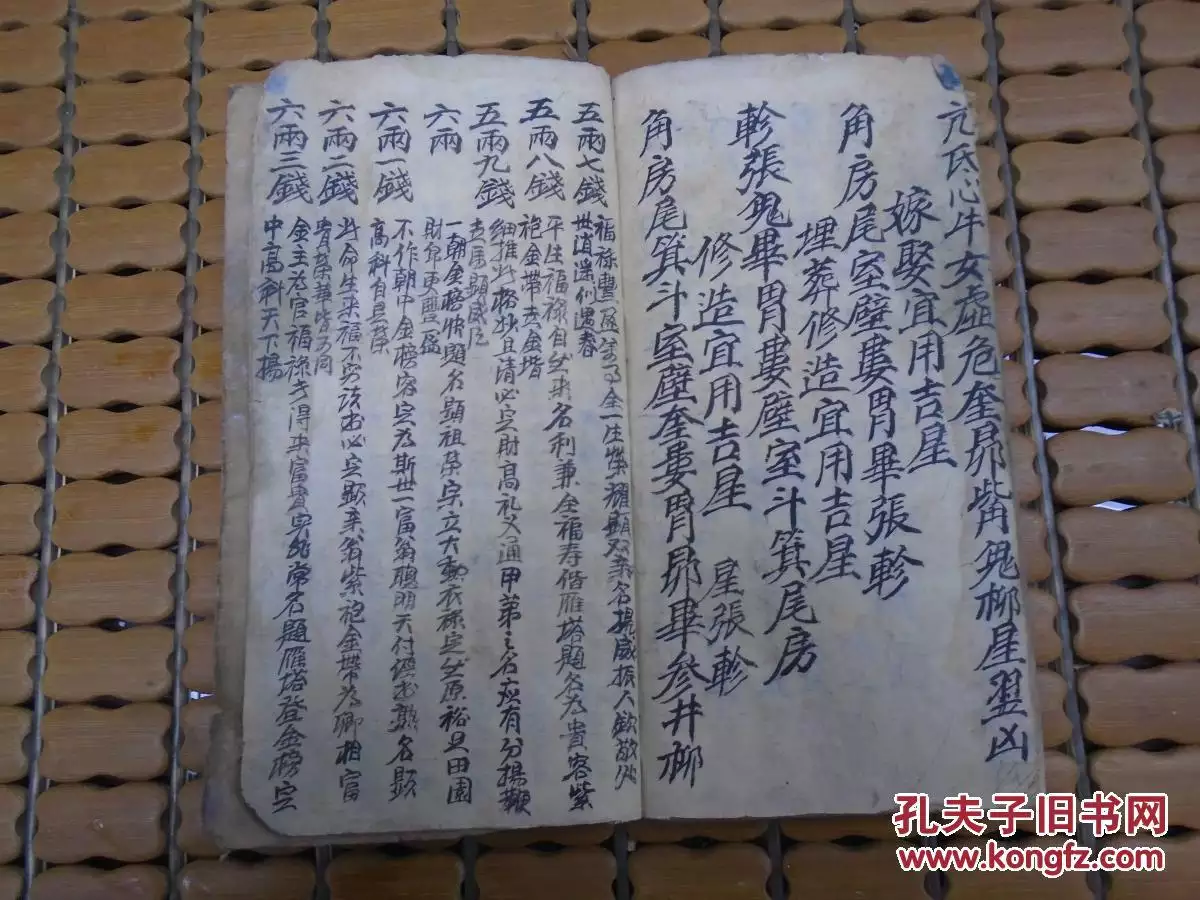 亢氐心牛女虛危奎昴觜角鬼柳星翌凶
嫁娶宜用吉星
角房尾室壁婁胃畢張軫
埋葬修造宜用吉星
軫張鬼畢胃婁壁室斗箕尾房
修造宜用吉星 星張軫
角房尾箕斗室壁奎婁胃昴畢參井柳
五兩七錢 福禄豐盈萬事全一生榮耀顯双亲名揚威振人欽敬处
世逍遥似遇春
五兩八錢 平生福禄自然来名利兼全福寿偕雁塔題名为貴客紫
袍金带走金堦
五兩九錢 細推此格妙且清必定財高礼义通甲第之名应有分揚鞭
走馬顯威
六兩 一朝金榜快題名顯祖荣宗立大勳衣祿定然原裕足田園
財帛更豐盈
六兩一錢 不作朝中金榜客定为斯世一富翁聰明天付經书熟名顯
高科自是荣
六兩二錢 此命生来福不窮读书必定顯亲翁紫袍金带为卿相富
貴荣華皆可同
六兩三錢 金主为官福禄長得来富貴实非常名題雁塔登金榜定
中高科天下揚
孔夫子旧书网
www.kongfz.com